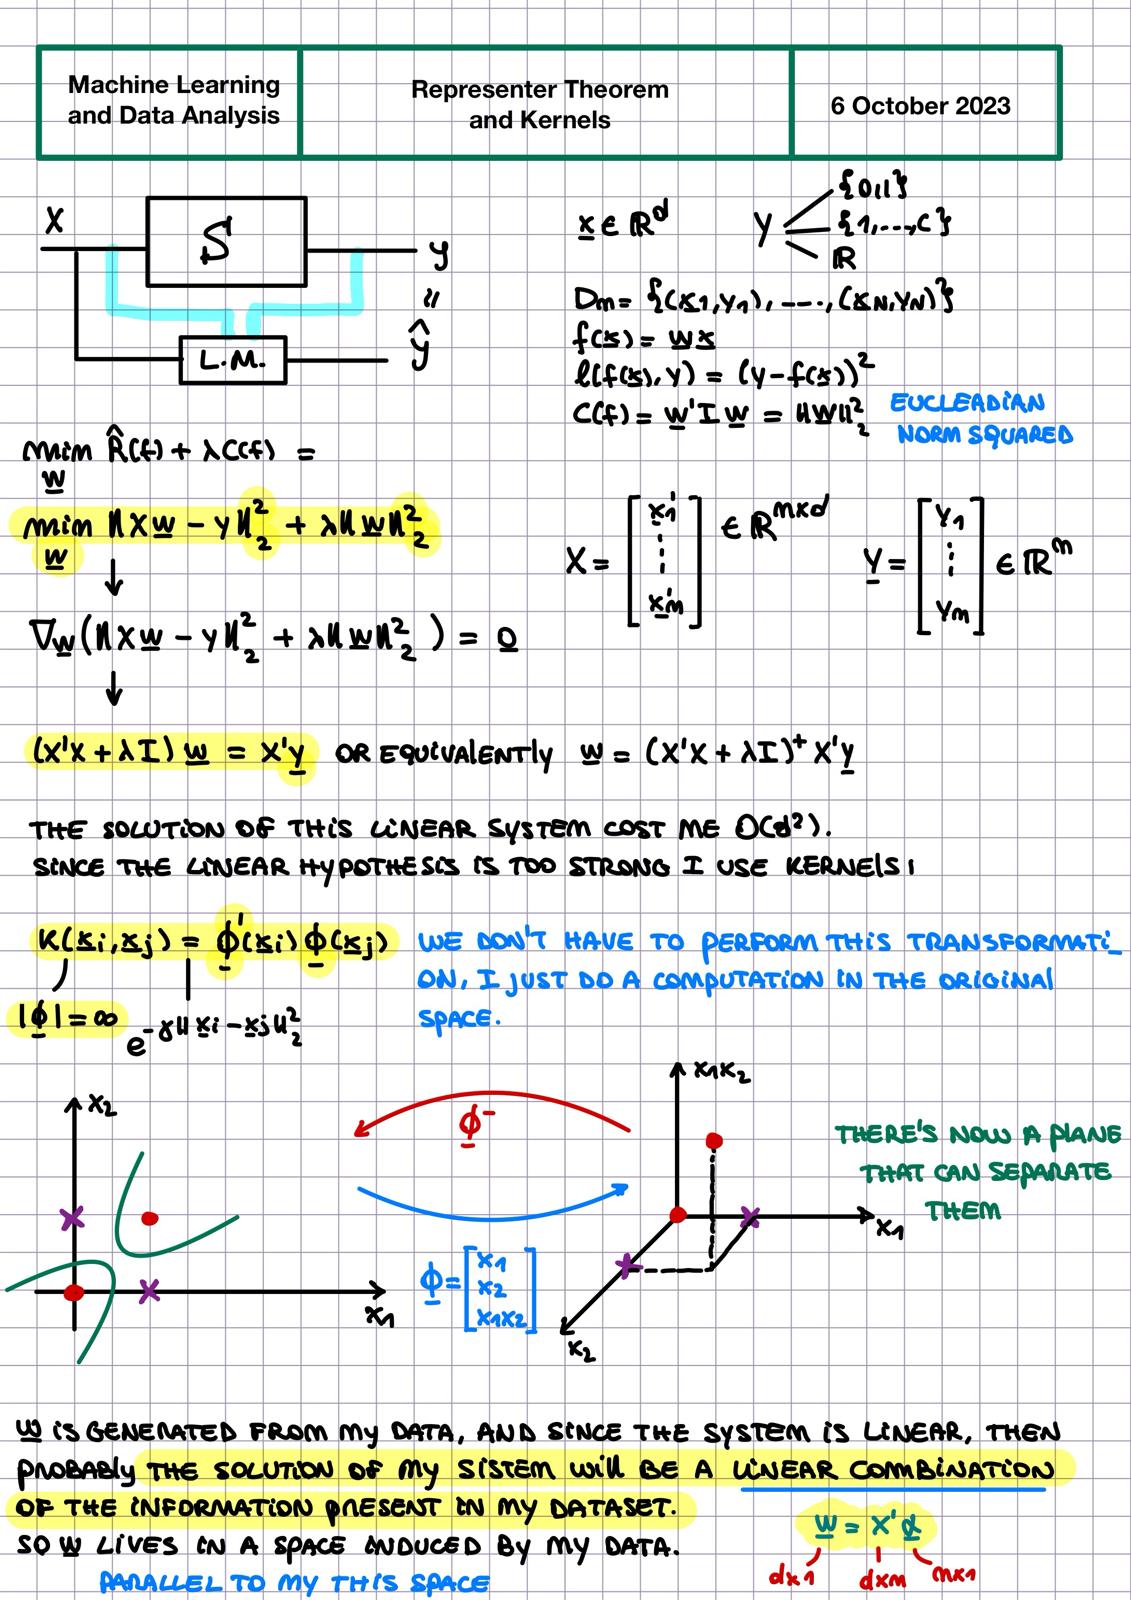 Machine Learning
and Data Analysis
Representer Theorem
and Kernels
6 October 2023
X
S
y
"
ŷ
L.M.
x ∈ ℝᵈ
Y
{0,1}
{1,...,C}
ℝ
Dm = {(x1,y1), ----, (xN,yN)}
f(x) = wx
ℓ(f(x),y) = (y-f(x))²
C(f) = w'Iw = ‖w‖²₂
EUCLEADIAN
NORM SQUARED
min R̂(f) + λC(f) =
w
min ‖Xw - y‖²₂ + λ‖w‖²₂
w
X = [x1' ⋮ xm'] ∈ ℝᵐˣᵈ
Y = [y1 ⋮ ym] ∈ ℝᵐ
∇w(‖Xw - y‖²₂ + λ‖w‖²₂) = 0
(X'X + λI) w = X'y OR EQUIVALENTLY w = (X'X + λI)⁺ X'y
THE SOLUTION OF THIS LINEAR SYSTEM COST ME O(d²).
SINCE THE LINEAR HYPOTHESIS IS TOO STRONG I USE KERNELS!
K(xi,xj) = ϕ'(xi) ϕ(xj)
WE DON'T HAVE TO PERFORM THIS TRANSFORMATI_
ON, I JUST DO A COMPUTATION IN THE ORIGINAL
SPACE.
|ϕ| = ∞
e^-γ‖xi-xj‖²₂
x2
x1
ϕ⁻
ϕ = [x1 x2 x1x2]
x1x2
x1
x2
THERE'S NOW A PLANE
THAT CAN SEPARATE
THEM
w IS GENERATED FROM MY DATA, AND SINCE THE SYSTEM IS LINEAR, THEN
PROBABLY THE SOLUTION OF MY SISTEM WILL BE A LINEAR COMBINATION
OF THE INFORMATION PRESENT IN MY DATASET.
SO w LIVES IN A SPACE INDUCED BY MY DATA.
PARALLEL TO MY THIS SPACE
w = X'α
dx1
dxm
mx1